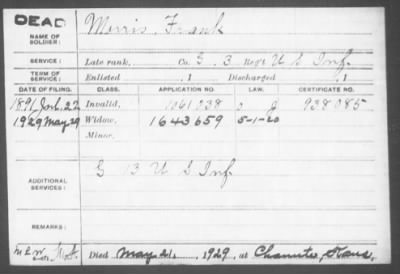 DEAD
NAME OF SOLDIER: Morris, Frank
SERVICE: Late rank, Co. G. 3 Reg't U S Inf.
TERM OF SERVICE: Enlisted , 1 Discharged , 1
DATE OF FILING. CLASS. APPLICATION NO. LAW. CERTIFICATE NO.
1891 July 22 Invalid, 1061038 938085
1929 May 29 Widow, 1643659 5-1-20
Minor,
ADDITIONAL SERVICES: G 13 U S Inf
REMARKS:
Died May 21, 1929, at Chanute, Kans.